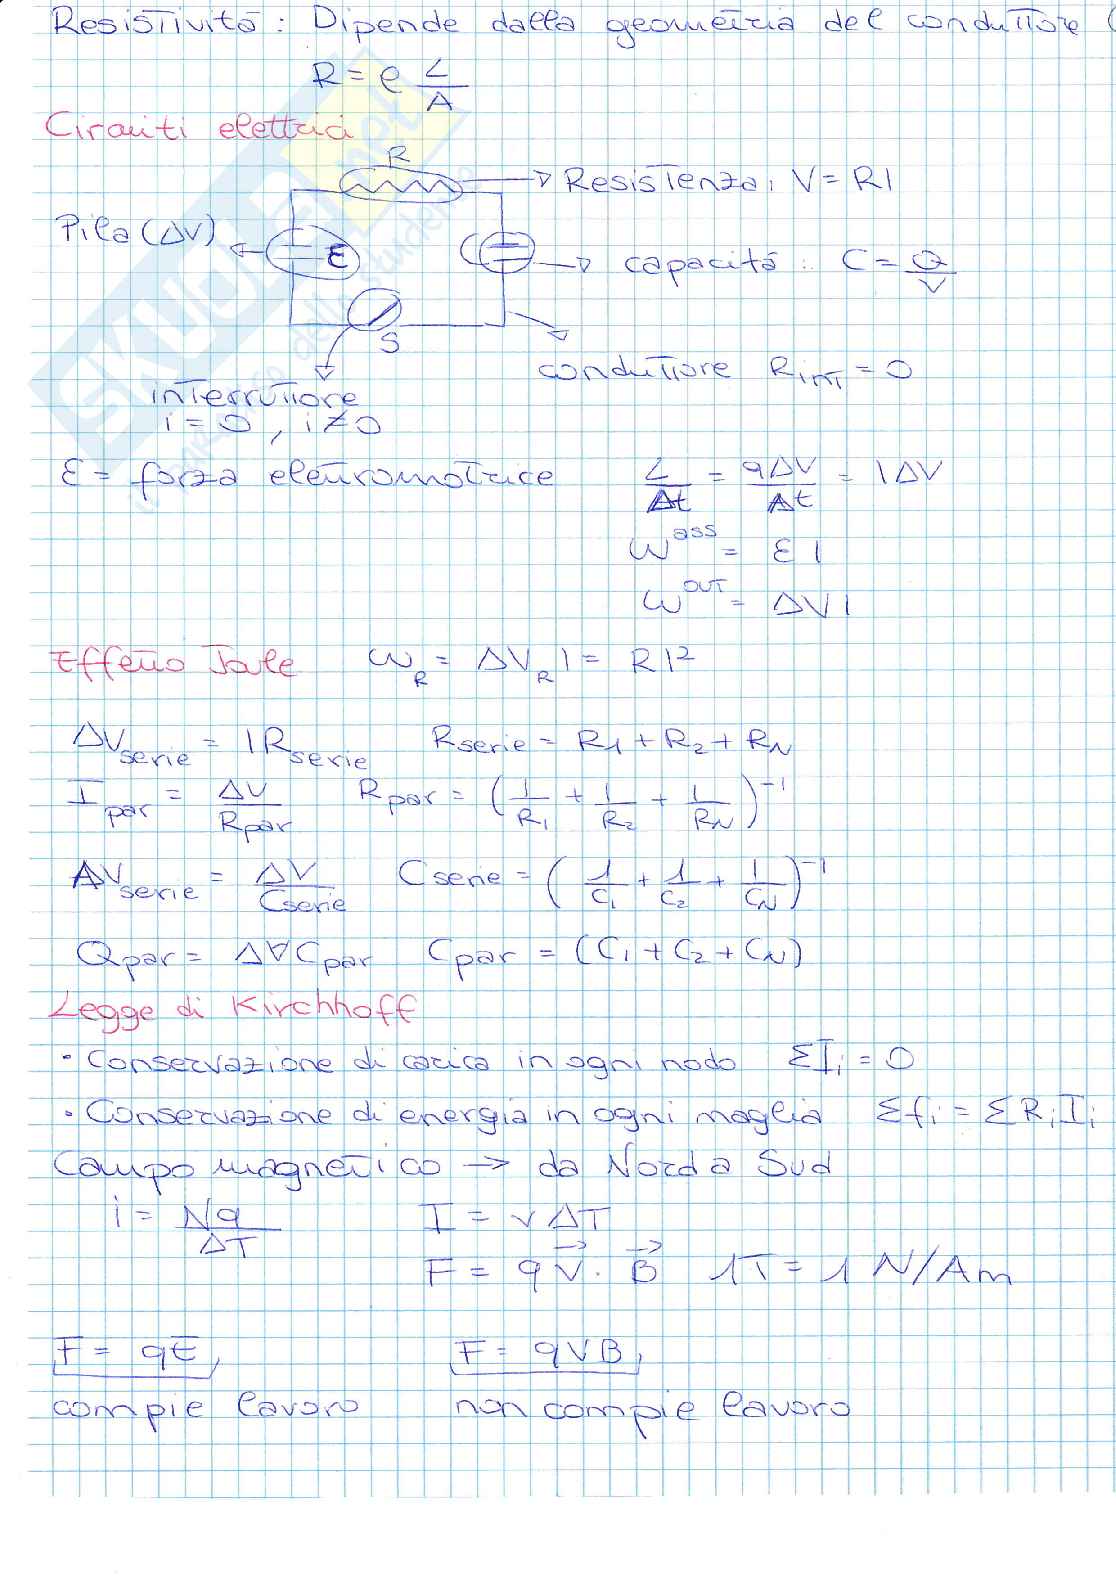 Resistività : Dipende dalla geometria del conduttore (
R = ρ L/A
Circuiti elettrici
R
Resistenza, V = RI
Pila (ΔV)
ε
C
capacità : C = Q/V
S
conduttore Rint = 0
interruttore
i = 0 , i ≠ 0
ε = forza elettromotrice L/Δt = qΔV/Δt = IΔV
W^ass = ε I
W^OUT = ΔV I
Effetto Joule W_R = ΔV_R I = RI²
ΔV_serie = I R_serie R_serie = R1 + R2 + RN
I_par = ΔV/R_par R_par = (1/R1 + 1/R2 + 1/RN)^-1
ΔV_serie = ΔV/C_serie C_serie = (1/C1 + 1/C2 + 1/CN)^-1
Q_par = ΔV C_par C_par = (C1 + C2 + CN)
Legge di Kirchhoff
· Conservazione di carica in ogni nodo ΣIi = 0
· Conservazione di energia in ogni maglia Σfi = ΣRiIi
Campo magnetico → da Nord a Sud
i = Nq/ΔT I = vΔT
F = qV⃗ · B⃗ 1T = 1 N/Am
F = qE, F = qVB,
compie lavoro non compie lavoro
SKUOLA.net